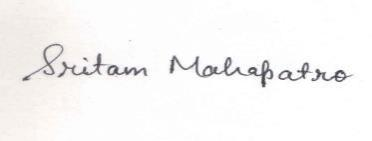 Sritam Mahapatro